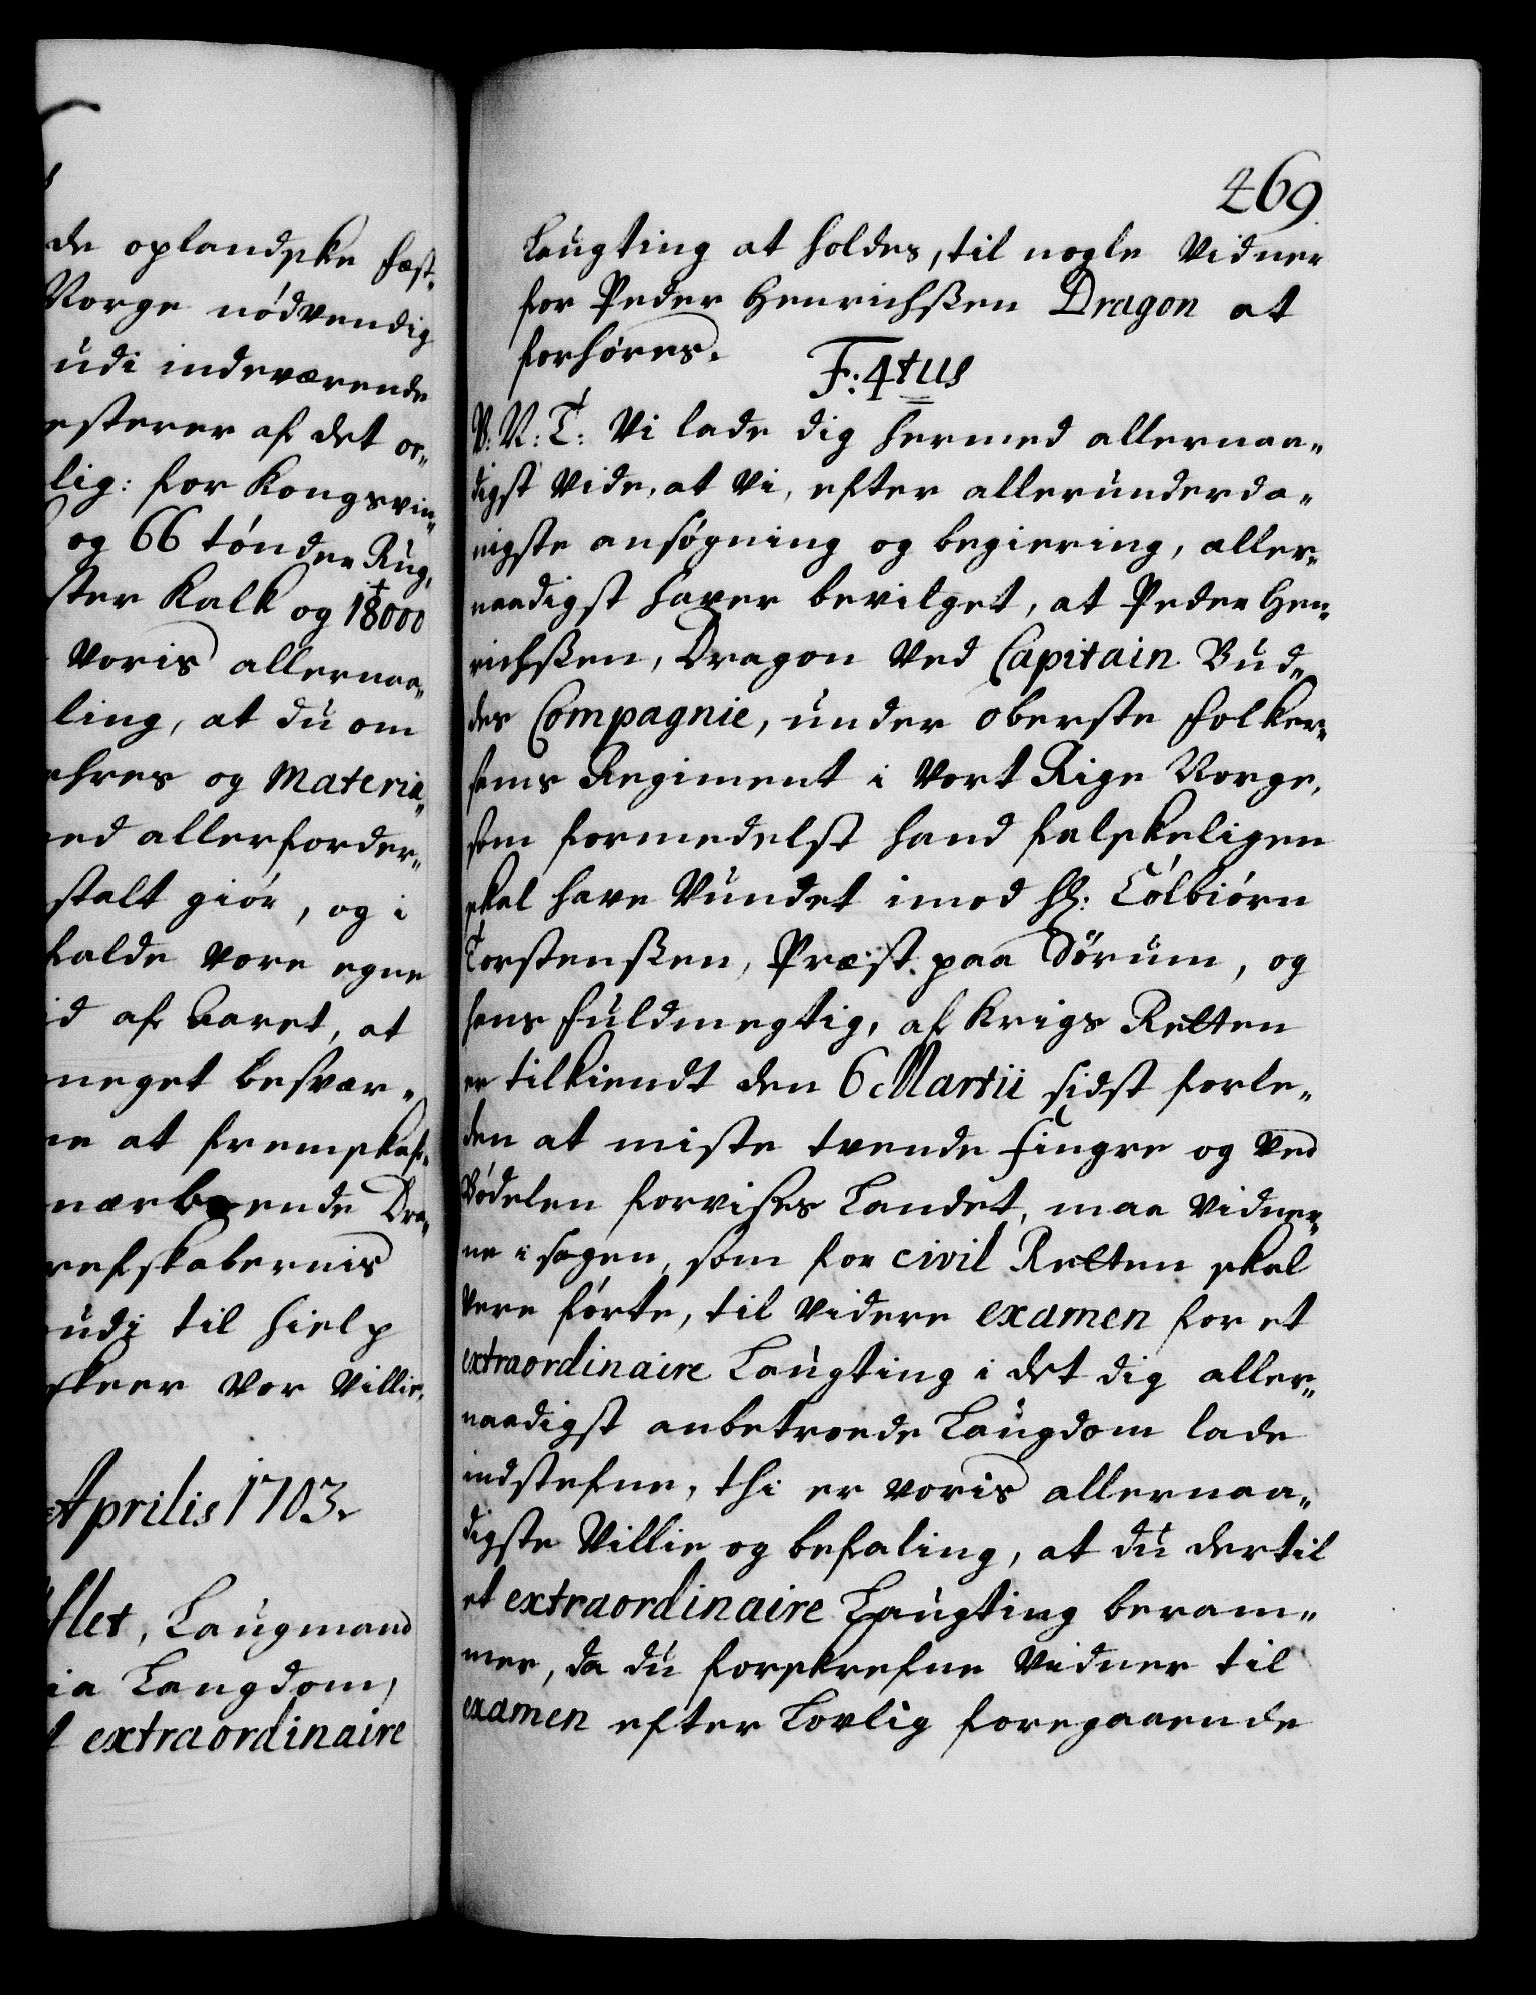 de oplandske fæst„
Norge nödvendig
udi indeværende
esterer af det or„
lig: for Kongsvin„
og 66 tönder Rug,
ster Kalk og 18000
Voris allernaa„
ling, at du om
ehres og Materia„
ed allerforder„
stalt giör, og i
falde vore egne
id af Aaret, at
meget besvær„
ne at fremskaf„
nærboende Dra„
refskabernis
udi til hielp
skeer vor Villie,
Aprilis 1703.
flet, Laugmand
ia Laugdom,
extraordinaire
469.
Laugting at holdes, til nogle Vidner
for Peder Henrichßen Dragon at
forhöres.
F: 4tus
V: N: T: Vi lade dig hermed allernaa„
digst vide, at Vi, efter allerunderda„
nigste ansögning og begiering, aller„
naadigst haver bevilget, at Peder Hen„
richßen, Dragon ved Capitain Bud„
des Compagnie, under Oberste Folker„
sems Regiment i Vort Rige Norge,
som formedelst hand falskeligen
skal have Vundet imod Hr: Cólbiörn
Torstenßen, Præst paa Sörum, og
hans fuldmegtig, af Krigs Retten
er tilkiendt den 6 Martii sidst forle„
den at miste tvende Fingre og ved
Bödelen forvises Landet, maa Vidner„
ne i sagen, som for civil Retten skal
være förte, til videre examen for et
extraordinaire Laugting i det dig aller„
naadigst anbetroede Laugdom lade
indstefne, thi er voris allernaa„
digste Villie og befaling, at du dertil
et extraordinaire Laugting beram„
mer, da du forskrefne Vidner til
examen efter Lovlig foregaaende